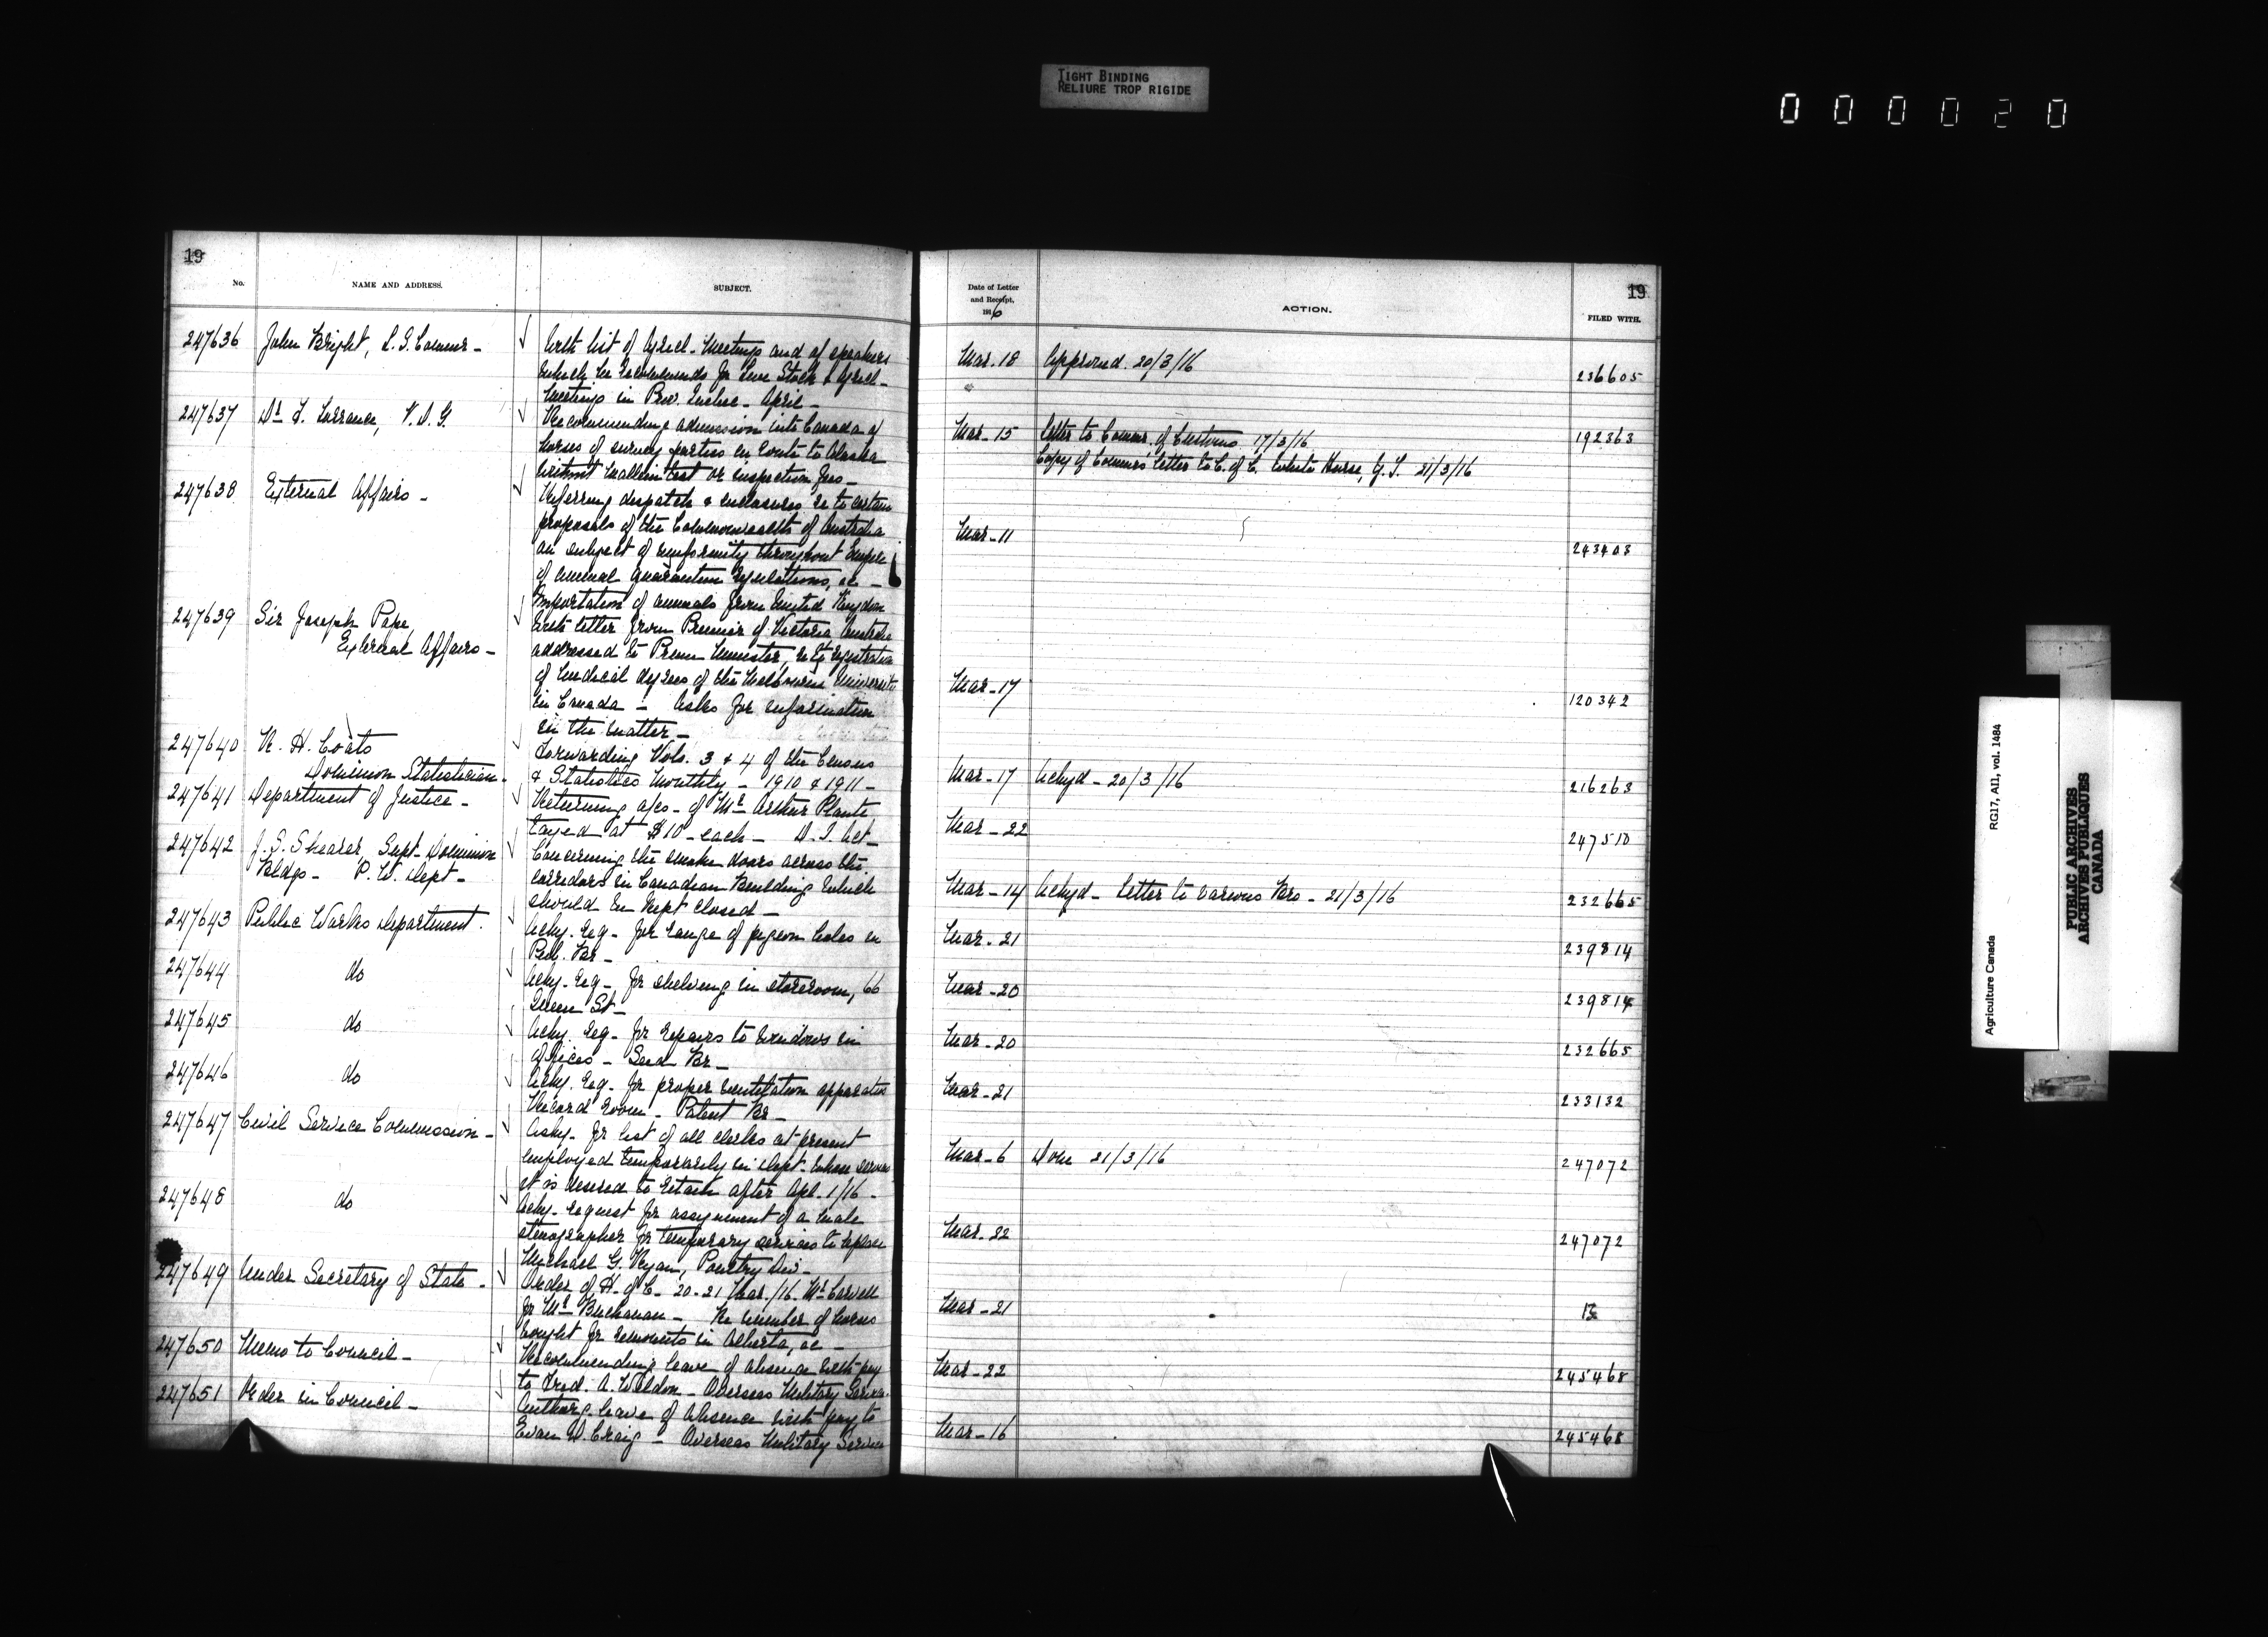 TIGHT BINDING
RELIURE TROP RIGIDE
000020
19
No.
NAME AND ADDRESS.
SUBJECT.
247636 John Bright, L. S. Commr -
With list of Agricl. Meetings and of speakers
which he recommends for Live Stock & Agricl -
Meetings in Prov. Quebec - April -
247637 Dr F. Torrance, V. D. G.
Recommending admission into Canada of
horses of survey parties en route to Alaska
without mallein test or inspection fees -
247638 External Affairs -
Referring despatch & enclosures re to certain
proposals of the Commonwealth of Australia
on subject of uniformity throughout Empire
of animal quarantine regulations, re -
Importation of animals from United Kingdom
247639 Sir Joseph Pope
External Affairs -
With letter from Premier of Victoria Australia
addressed to Prime Minister, re to registration
of medical degrees of the Melbourne University
in Canada - Asks for information
in the matter -
247640 R. H. Coats
Dominion Statistician -
Forwarding Vols. 3 & 4 of the Census
& Statistics Monthly - 1910 & 1911 -
247641 Department of Justice -
Returning a/cs - of Mr Arthur Plante
taxed at $10 - each - D. I. Act -
247642 J. S. Shearer, Supt. Dominion
Bldgs - P. W. Dept -
Concerning the smoke doors across the
corridors in Canadian Building which
should be kept closed -
247643 Public Works Department.
Ackg. Req - for range of pigeon holes in
Pub. Br -
247644 do
Ackg. Req - for shelving in storeroom, 66
Queen St -
247645 do
Ackg. Req - for repairs to windows in
offices - Seed Br -
247646 do
Ackg. Req - for proper ventilation apparatus
Record Room - Patent Br -
247647 Civil Service Commission -
Askg - for list of all clerks at present
employed temporarily in Dept - whose services
it is desired to retain after Apl. 1/16 -
247648 do
Ackg - request for assignment of a male
stenographer for temporary services to replace
Michael G. Ryan, Poultry Div -
247649 Under Secretary of State -
Order of H. of C. 20 - 21 Mar./16 - Mr Carvell
for Mr Buchanan - Re number of horses
bought for remounts in Alberta, re -
247650 Memo to Council -
Recommending leave of absence with pay
to Fred. A. Weldon - Overseas Military Service -
247651 Order in Council -
Authorg. leave of absence with pay to
Evan D. Craig - Overseas Military Service
19
Date of Letter
and Receipt,
1916
ACTION.
FILED WITH.
Mar. 18 Approved. 20/3/16 236605
Mar - 15 Letter to Commr. of Customs 17/3/16 192363
Copy of Commr's letter to C. of C. White Horse, Y. T. 21/3/16
Mar - 11 243403
Mar - 17 120342
Mar - 17 Ackgd - 20/3/16 216263
Mar - 22 247510
Mar - 14 Ackgd - Letter to various Brs - 21/3/16 232665
Mar - 21 239814
Mar - 20 239814
Mar - 20 232665
Mar - 21 233132
Mar - 6 Done 21/3/16 247072
Mar - 22 247072
Mar - 21
Mar - 22 245468
Mar - 16 245468
Agriculture Canada RG17, AII, vol. 1484
PUBLIC ARCHIVES
ARCHIVES PUBLIQUES
CANADA